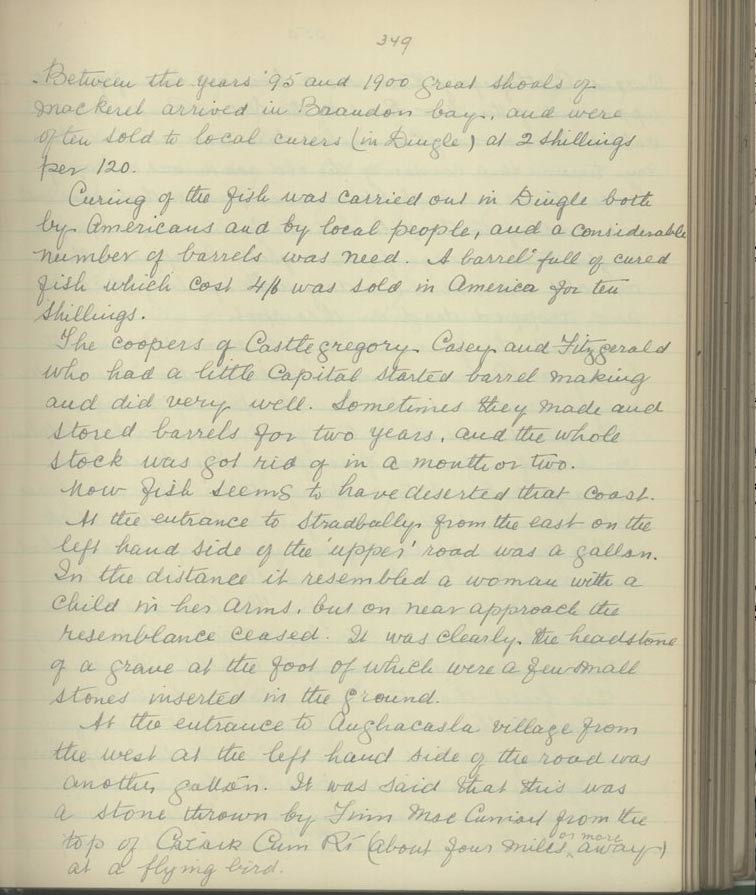 349
Between the years '95 and 1900 great shoals of
mackerel arrived in Brandon bay, and were
often sold to local curers (in Dingle) at 2 shillings
per 120.
Curing of the fish was carried out in Dingle both
by Americans and by local people, and a considerable
number of barrels was need. A barrel full of cured
fish which cost 4/6 was sold in America for ten
shillings.
The coopers of Castlegregory Casey and Fitzgerald
who had a little capital started barrel making
and did very well. Sometimes they made and
stored barrels for two years, and the whole
stock was got rid of in a month or two.
Now fish seems to have deserted that coast.
At the entrance to Stradbally from the east on the
left hand side of the 'upper' road was a gallan.
In the distance it resembled a woman with a
child in her arms, but on near approach the
resemblance ceased. It was clearly the headstone
of a grave at the foot of which were a few small
stones inserted in the ground.
At the entrance to Aughacasla village from
the west at the left hand side of the road was
another gallán. It was said that this was
a stone thrown by Finn Mac Cumail from the
top of Cum Rí (about four miles or more away)
at a flying bird.